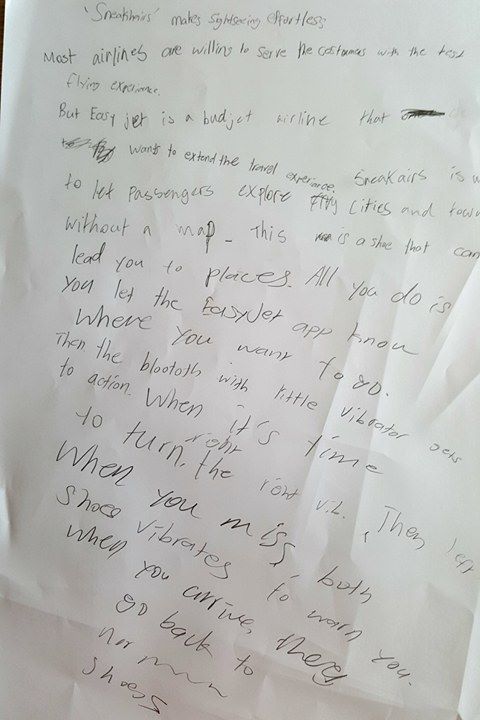 'Sneakairs' makes sightseeing effortless
Most airlines are willing to serve the customers with the test
flying experience.
But Easy jet is a budjet airline that
wants to extend the travel experience, Sneakairs is
to let passengers explore cities and town
without a map. This is a shoe that can
lead you to places. All you do is
you let the EasyJet app know
where you want to go.
Then the bloototh with little vibrator gets
to action. When it's time
to turn right, the right vib. Then left
When you miss, both
shoes vibrates to warn you.
When you arrive, they
go back to
shoes